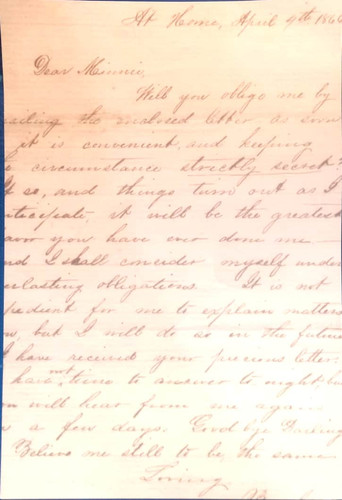 At Home, April 9th 186
Dear Minnie,
Will you oblige me by
ailing the enclosed letter as soon
it is convenient and keeping
e circumstance strictly secret?
f so, and things turn out as I
nticipate, it will be the greatest
avor you have ever done me—
nd I shall consider myself under
erlasting obligations. It is not
pedient for me to explain matters
ow, but I will do so in the future
I have received your precious letter.
have not time to answer to night but
ou will hear from me again
n a few days. Good bye Darling
Believe me still to be the same
Loving